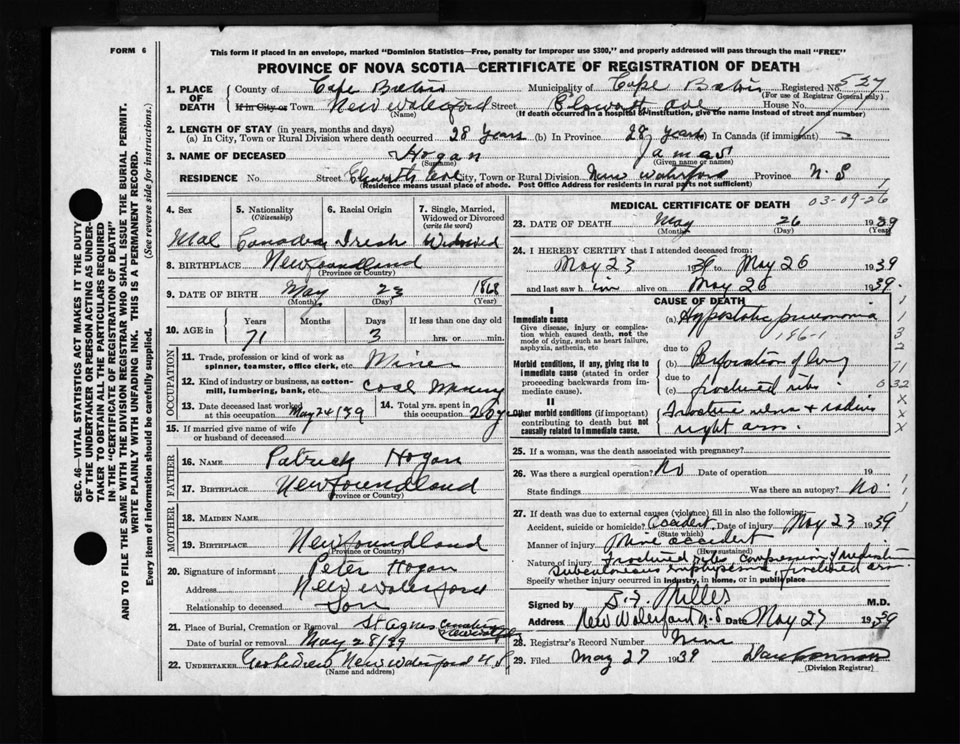 FORM 6
This form if placed in an envelope, marked "Dominion Statistics—Free, penalty for improper use $300," and properly addressed will pass through the mail "FREE"
PROVINCE OF NOVA SCOTIA—CERTIFICATE OF REGISTRATION OF DEATH
SEC. 46—VITAL STATISTICS ACT MAKES IT THE DUTY
OF THE UNDERTAKER OR PERSON ACTING AS UNDER-
TAKER TO OBTAIN ALL THE PARTICULARS REQUIRED
IN THE "CERTIFICATE OF REGISTRATION OF DEATH"
AND TO FILE THE SAME WITH THE DIVISION REGISTRAR WHO SHALL ISSUE THE BURIAL PERMIT.
WRITE PLAINLY WITH UNFADING INK. THIS IS A PERMANENT RECORD.
Every item of information should be carefully supplied. (See reverse side for instructions.)
1. PLACE OF DEATH
County of Cape Breton Municipality of Cape Breton Registered No. 527
(For use of Registrar General only)
If in City or Town New Waterford Street Elsworth Ave House No.
(Name) (If death occurred in a hospital or institution, give the name instead of street and number)
2. LENGTH OF STAY (in years, months and days)
(a) In City, Town or Rural Division where death occurred 28 Years (b) In Province 28 years (c) In Canada (if immigrant)
3. NAME OF DECEASED Hogan James
(Surname) (Given name or names)
RESIDENCE No. Street Elsworth Ave City, Town or Rural Division New Waterford Province N. S
(Residence means usual place of abode. Post Office Address for residents in rural parts not sufficient)
4. Sex 5. Nationality (Citizenship) 6. Racial Origin 7. Single, Married, Widowed or Divorced (write the word)
Mal Canadian Irish Widowed
8. BIRTHPLACE Newfoundland
(Province or Country)
9. DATE OF BIRTH May 23 1868
(Month) (Day) (Year)
10. AGE in Years Months Days If less than one day old
71 3 hrs. or min.
OCCUPATION
11. Trade, profession or kind of work as spinner, teamster, office clerk, etc. Miner
12. Kind of industry or business, as cotton-mill, lumbering, bank, etc. Coal Mining
13. Date deceased last worked at this occupation May 24/39 14. Total yrs. spent in this occupation
15. If married give name of wife or husband of deceased
FATHER
16. NAME Patrick Hogan
17. BIRTHPLACE Newfoundland
(Province or Country)
MOTHER
18. MAIDEN NAME
19. BIRTHPLACE Newfoundland
(Province or Country)
20. Signature of informant Peter Hogan
Address New Waterford
Relationship to deceased Son
21. Place of Burial, Cremation or Removal St Agnes
Date of burial or removal May 28/39
22. UNDERTAKER New Waterford N S
(Name and address)
MEDICAL CERTIFICATE OF DEATH 03-09-26
23. DATE OF DEATH May 26 1939
(Month) (Day) (Year)
24. I HEREBY CERTIFY that I attended deceased from:
May 23 1939 to May 26 1939
and last saw him alive on May 26 1939.
CAUSE OF DEATH
I
Immediate cause
Give disease, injury or complication which caused death, not the mode of dying, such as heart failure, asphyxia, asthenia, etc
(a) Hypostatic pneumonia
196-1
due to
Morbid conditions, if any, giving rise to immediate cause (stated in order proceeding backwards from immediate cause).
(b) Perforation of lung
due to
(c) fractured ribs
II
Other morbid conditions (if important) contributing to death but not causally related to immediate cause.
Fracture ulna & radius
right arm.
25. If a woman, was the death associated with pregnancy?
26. Was there a surgical operation? No Date of operation 19
State findings Was there an autopsy? No.
27. If death was due to external causes (violence) fill in also the following:
Accident, suicide or homicide? Accident. Date of injury May 23 1939
(State which)
Manner of injury Mine accident
(How sustained)
Nature of injury Fractured ribs
subcutaneous emphysema, fractured arm.
Specify whether injury occurred in industry, in home, or in public place
Signed by Miller M.D.
Address New Waterford N.S Date May 27 1939
28. Registrar's Record Number Nine
29. Filed May 27 1939
(Division Registrar)